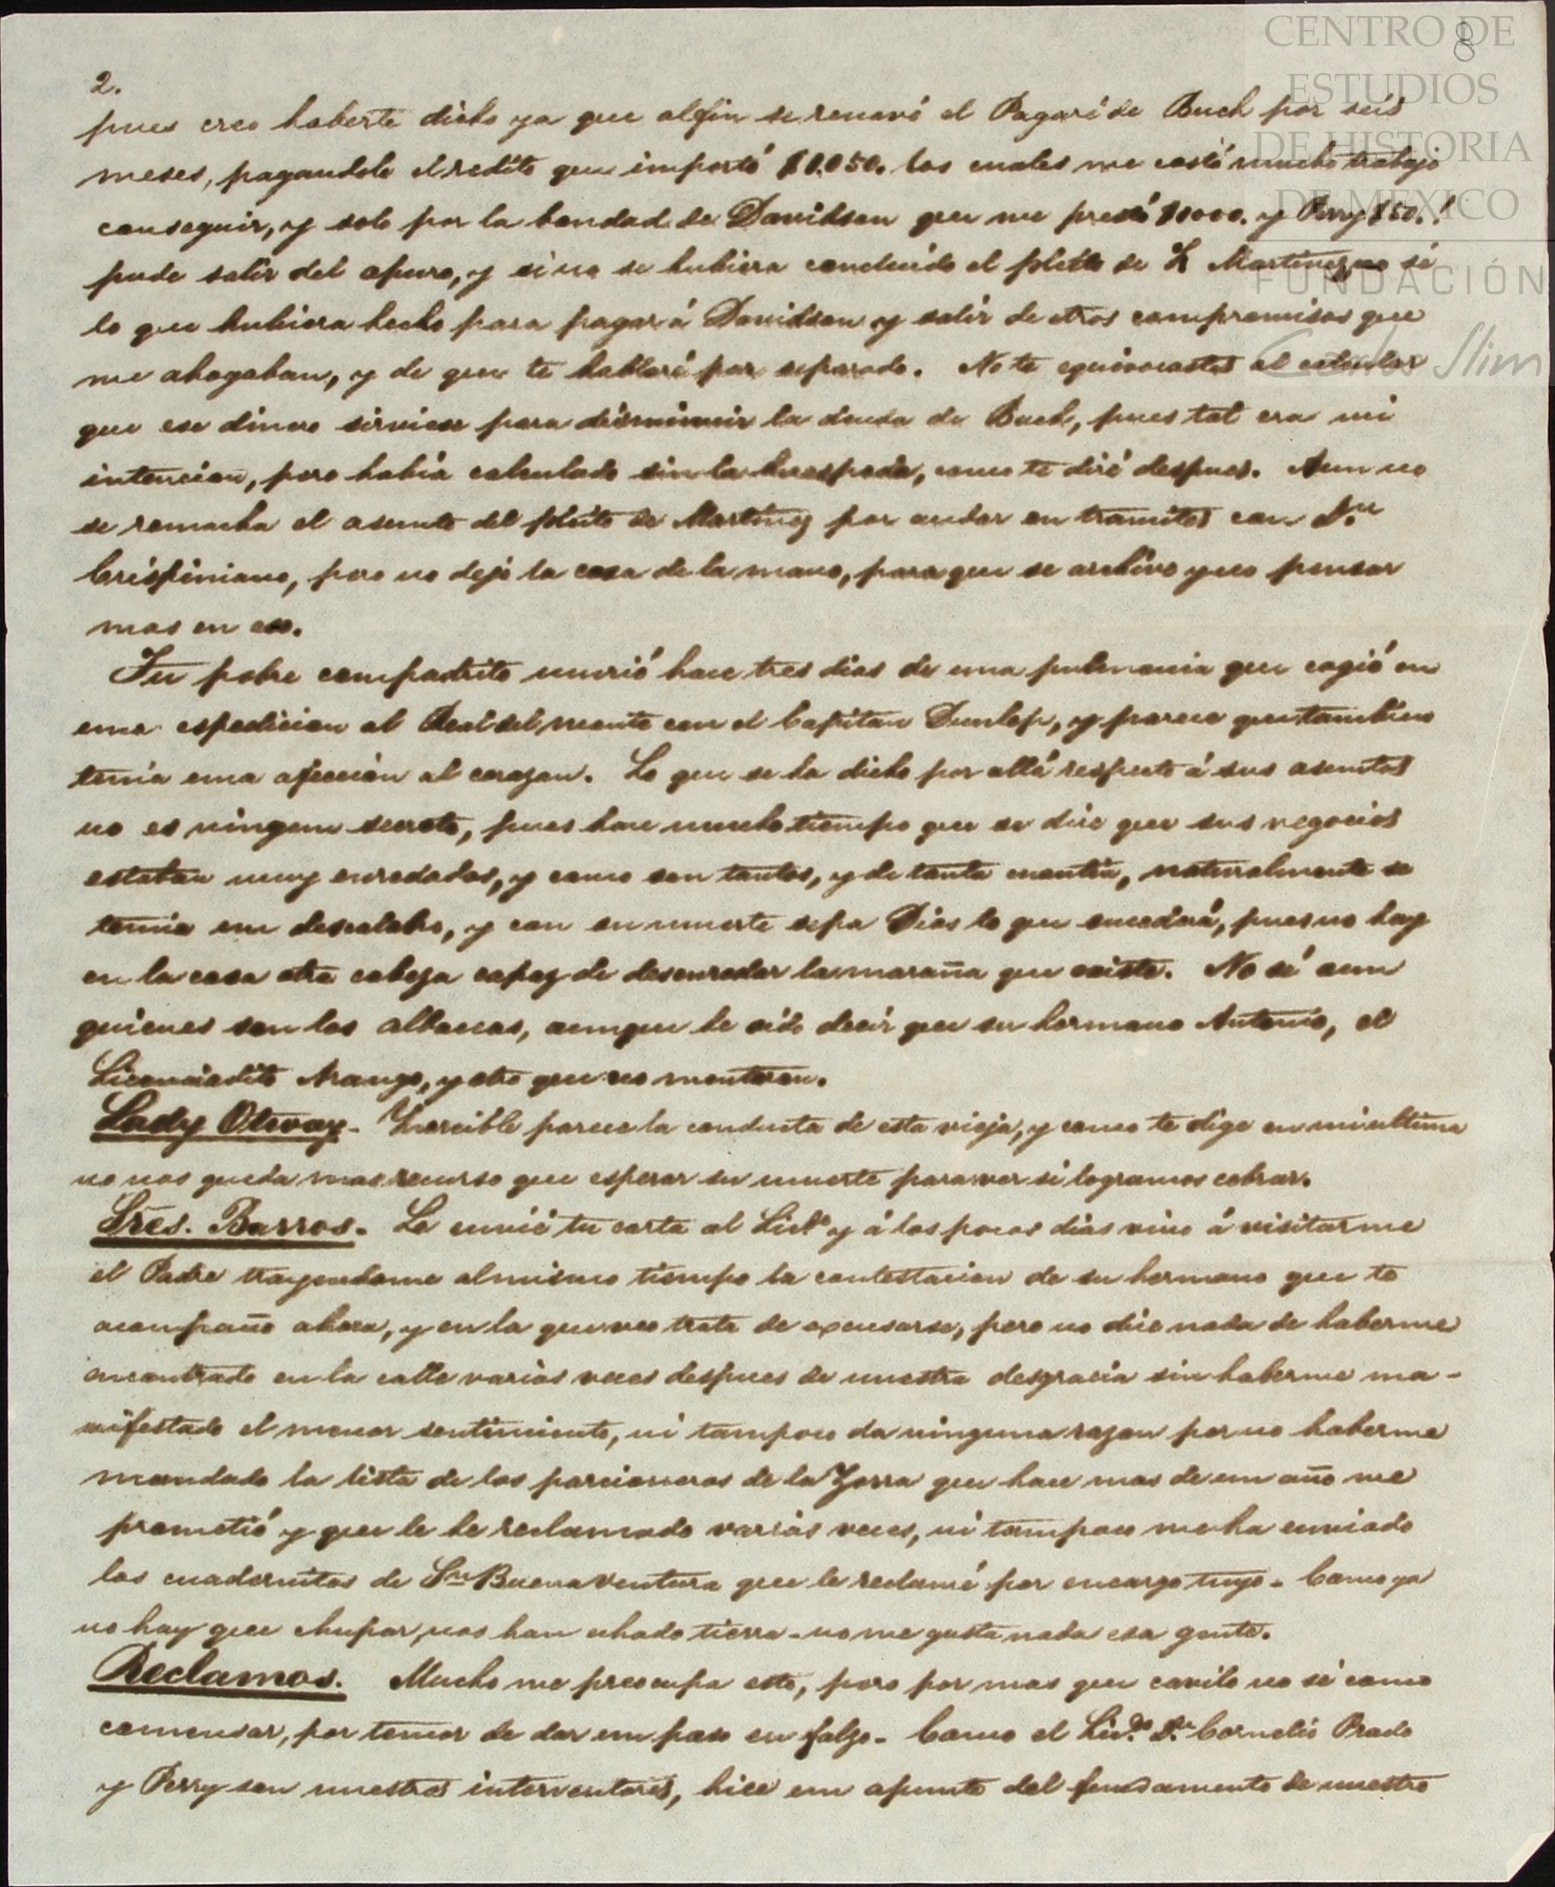 CENTRO DE
ESTUDIOS
DE HISTORIA
DE MEXICO
FUNDACIÓN
Carlos Slim
8
2.
pues creo haberte dicho ya que alfin se renovó el Pagaré de Buch por seis
meses, pagandole el redito que importó $1.050. los cuales me costó mucho trabajo
conseguir, y solo por la bondad de Davidson que me prestó $1000. y Perry $50.!
pude salir del apuro, y si no se hubiera concluido el pleito de Martinez no sé
lo que hubiera hecho para pagar á Davidson y salir de otros compromisos que
me ahogaban, y de que te hablaré por separado. No te equivocastes al calcular
que ese dinero sirviese para disminuir la deuda de Buch, pues tal era mi
intencion, pero habia calculado sin la huespeda, como te diré despues. Aun no
se remacha el asunto del pleito de Martinez por andar en tramites con Dn
Crispiniano, pero no dejo la cosa de la mano, para que se archive y no pensar
mas en eso.
Tu pobre compadrito murió hace tres dias de una pulmonia que cogió en
una espedicion al Real del monte con el Capitan Dunlop, y parece que tambien
tenia una afeccion al corazon. Lo que se ha dicho por allá respecto á sus asuntos
no es ningun secreto, pues hace mucho tiempo que se dice que sus negocios
estaban muy enredados, y como son tantos, y de tanta cuantia, naturalmente se
temia un descalabro, y con su muerte sepa Dios lo que sucederá, pues no hay
en la casa otra cabeza capaz de desenredar la maraña que existe. No sé aun
quienes son los albaceas, aunque he oido decir que su hermano Antonio, el
Licenciadito Arango, y otro que no mentaron.
Lady Otway - Increible parece la conducta de esta vieja, y como te dige en mi ultima
no nos queda mas recurso que esperar su muerte para ver si logramos cobrar.
Sres. Barros. Le envié tu carta al Licdo y á los pocos dias vino á visitarme
el Padre trayendome al mismo tiempo la contestacion de su hermano que te
acompaño ahora, y en la que veo trata de excusarse, pero no dice nada de haberme
encontrado en la calle varias veces despues de nuestra desgracia sin haberme ma-
nifestado el menor sentimiento, ni tampoco da ninguna razon por no haberme
mandado la lista de los parcioneros de la Zorra que hace mas de un año me
prometió y que le he reclamado varias veces, ni tampoco me ha enviado
los cuadernitos de Sn Buenaventura que le reclamé por encargo tuyo. Como ya
no hay que chupar, nos han echado tierra - no me gusta nada esa gente.
Reclamos. Mucho me preocupa esto, pero por mas que cavilo no sé como
comensar, por temor de dar un paso en falzo - Como el Licdo Dn Cornelio Prado
y Perry son nuestros interventores, hice un apunte del fundamento de nuestro